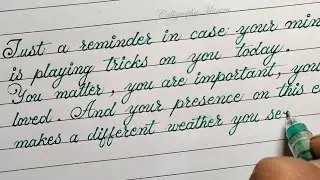 Just a reminder in case your min
is playing tricks on you today.
You matter, you are important, you
loved. And your presence on this e
makes a different weather you se